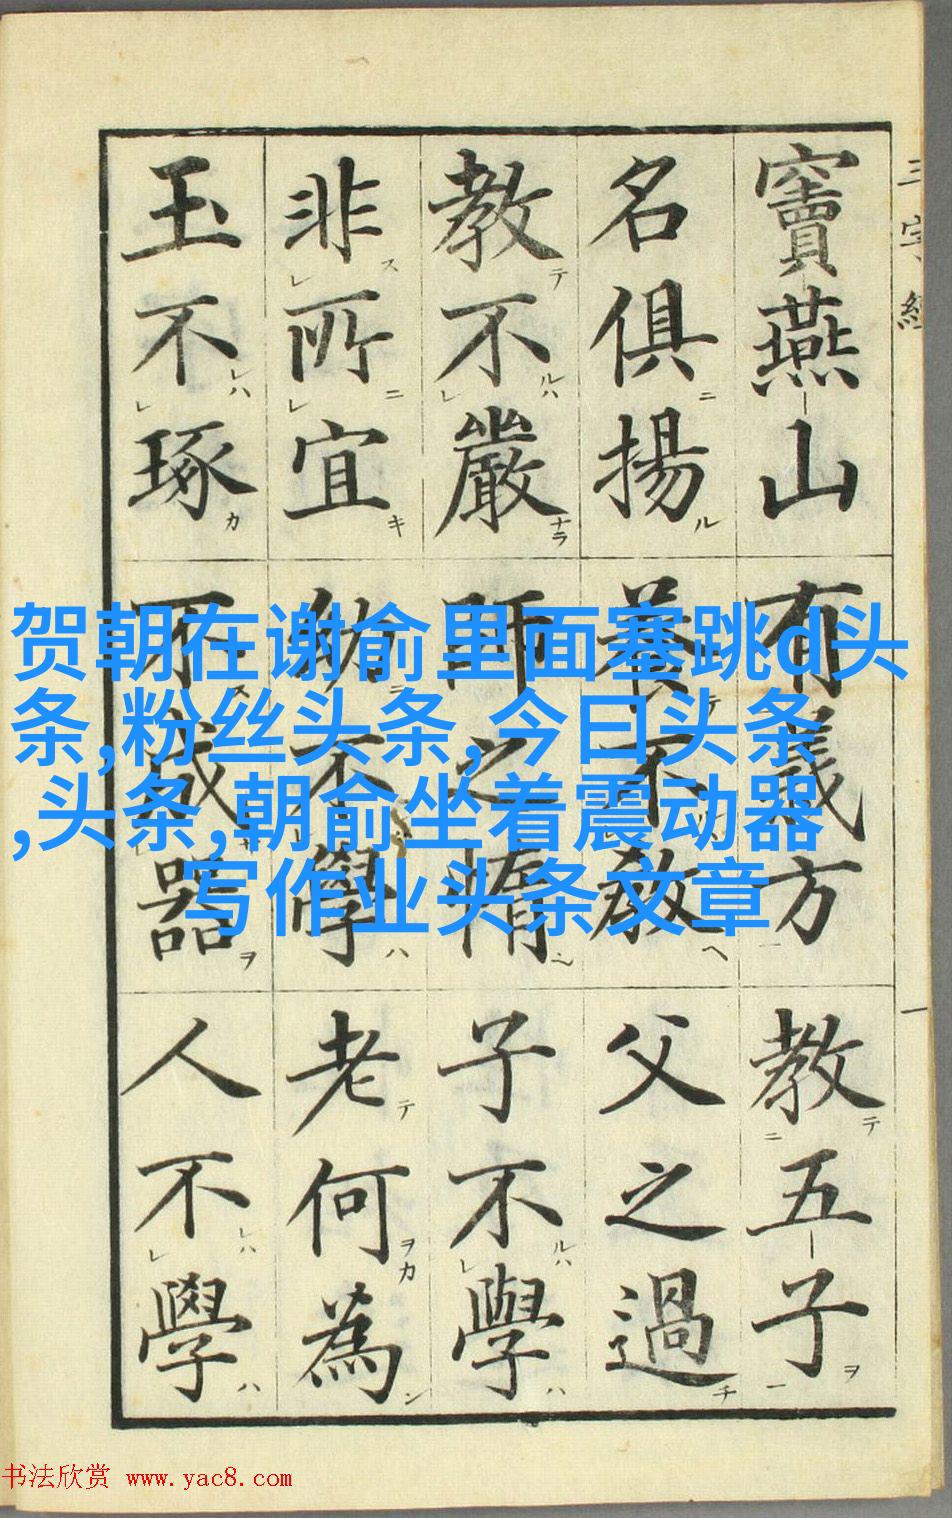 三字經 一
竇燕山 有義方 教五子
名俱揚 養不教 父之過
教不嚴 師之惰 子不學
非所宜 幼不學 老何為
玉不琢 不成器 人不學
贺朝在谢俞里面塞跳d头
条,粉丝头条,今日头条
,头条,朝俞坐着震动器
写作业头条文章
书法欣赏 www.yac8.com